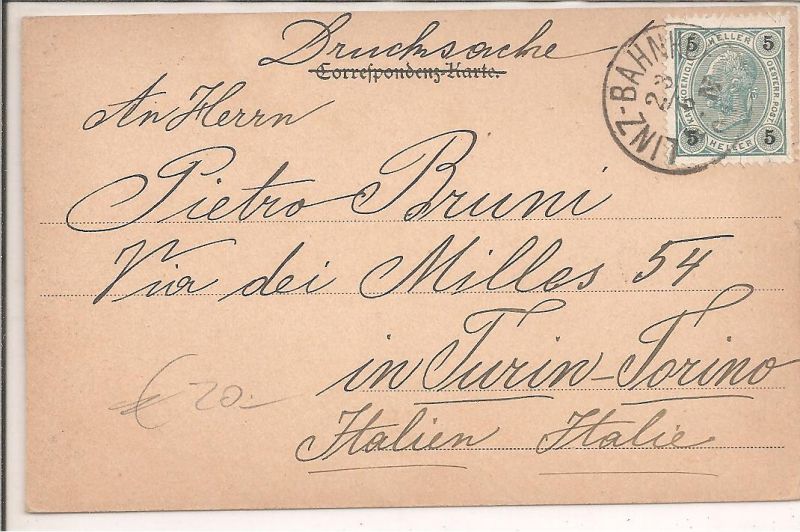 Drucksache
Correspondenz-Karte.
An Herrn
Pietro Bruni
Via dei Milles 54
in Turin-Torino
Italien Italie
€ 20.-
LINZ-BAHNHO
23
5 HELLER 5
OESTERR. POST
5 HELLER 5